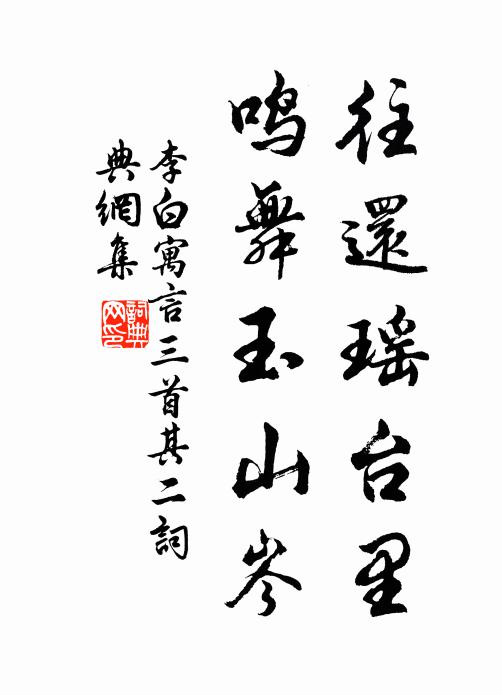 往還瑶台里
鸣舞玉山岑
李白寓言三首其二詞
典網集
詞典
网印